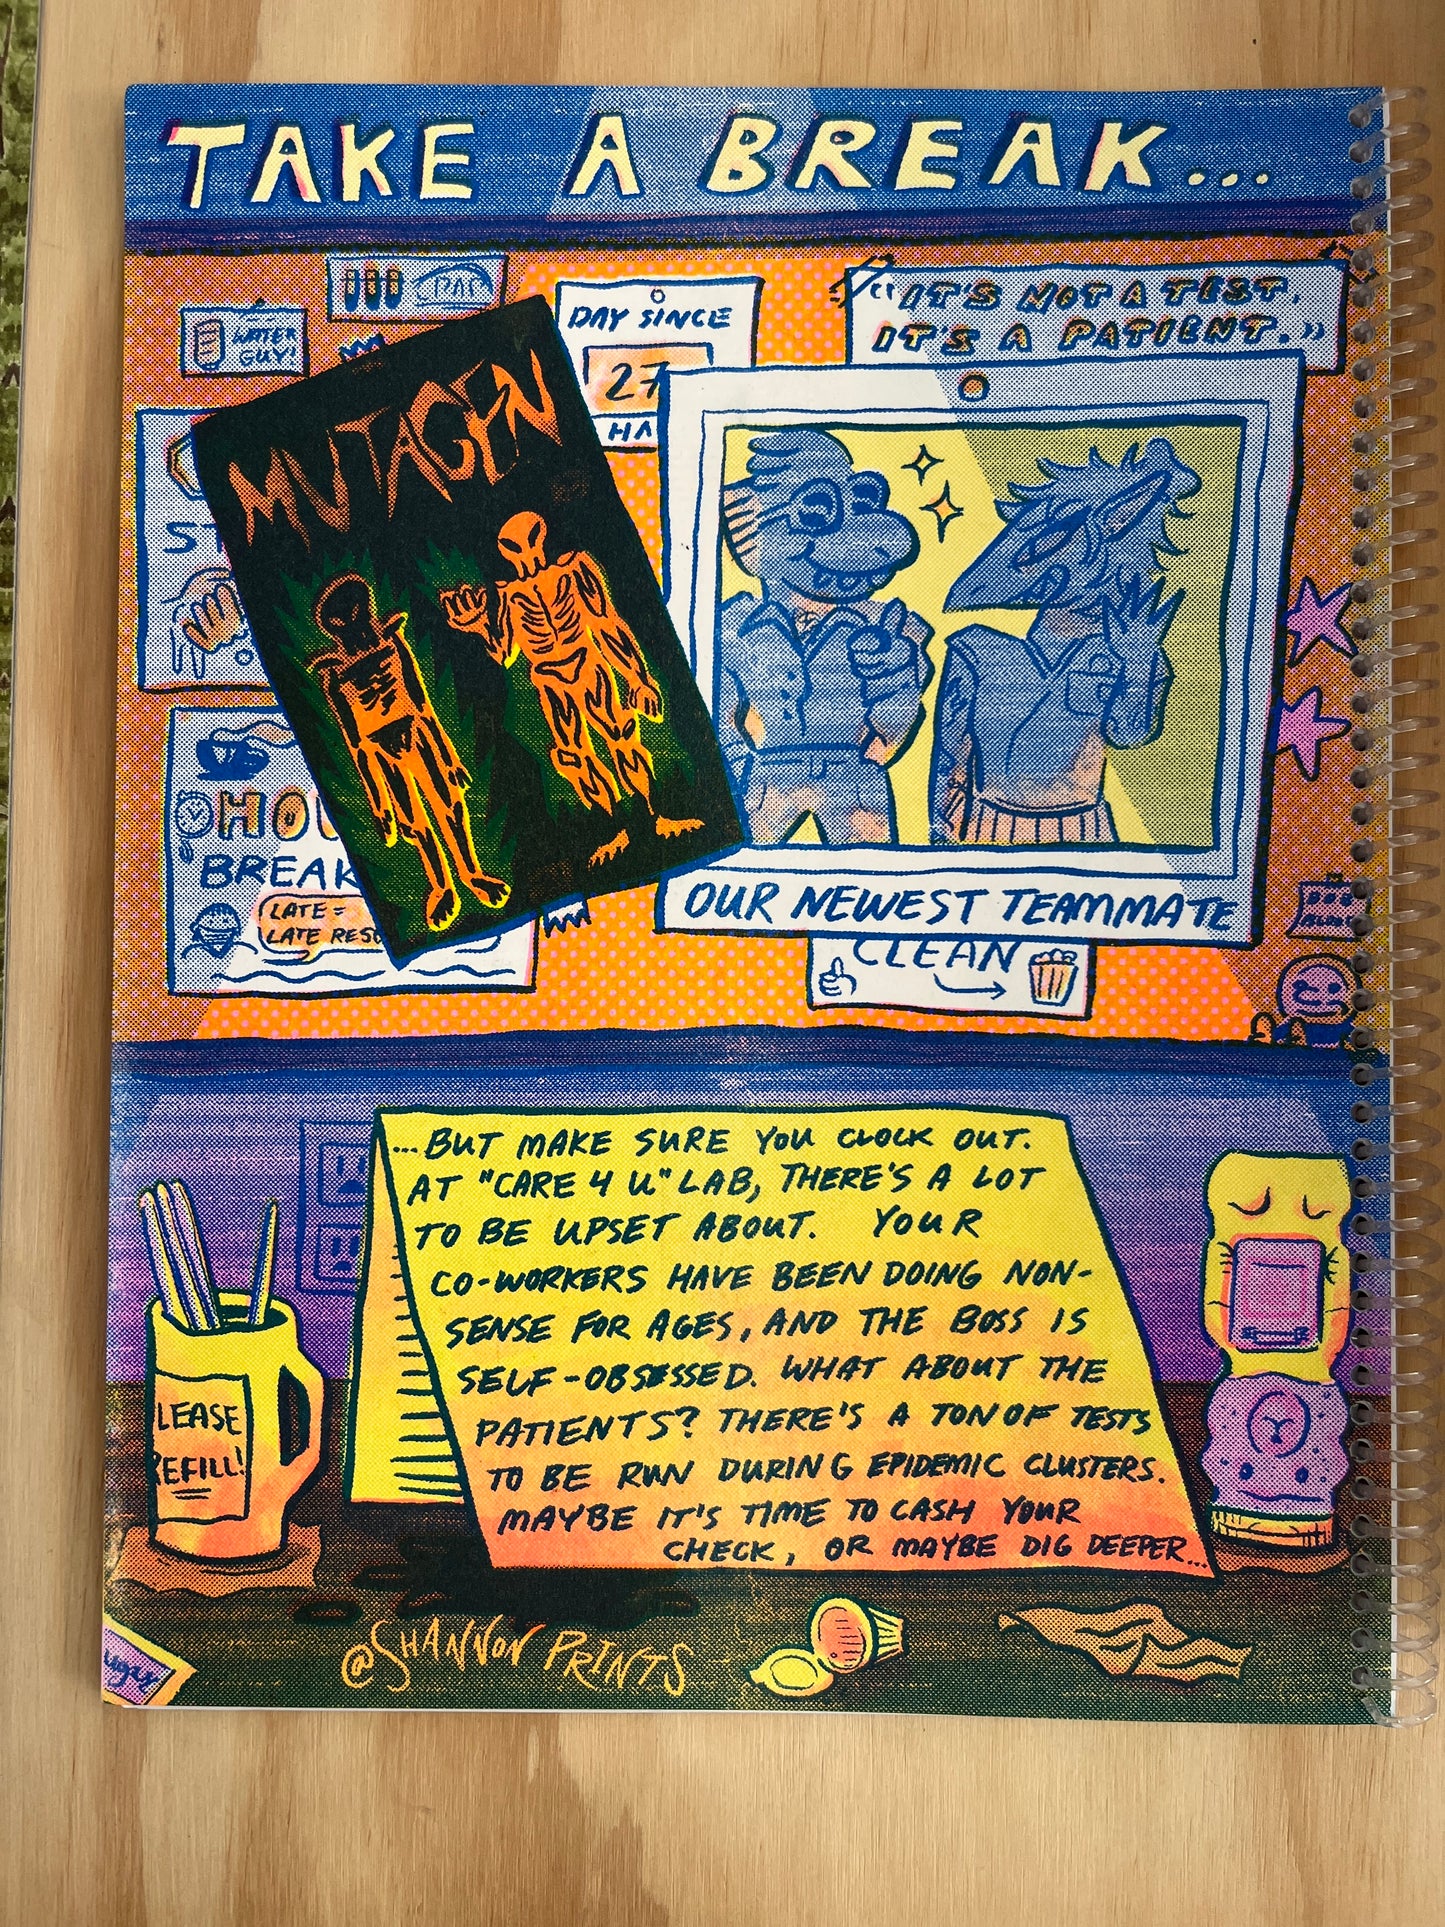 TAKE A BREAK...
WATER
GUY!
DAY SINCE
27
HA
"IT'S NOT A TEST.
IT'S A PATIENT."
MUTAGEN
ST
HOU
BREAK
LATE =
LATE RESU
OUR NEWEST TEAMMATE
CLEAN
...BUT MAKE SURE YOU CLOCK OUT.
AT "CARE 4 U" LAB, THERE'S A LOT
TO BE UPSET ABOUT. YOUR
CO-WORKERS HAVE BEEN DOING NON-
SENSE FOR AGES, AND THE BOSS IS
SELF-OBSESSED. WHAT ABOUT THE
PATIENTS? THERE'S A TON OF TESTS
TO BE RUN DURING EPIDEMIC CLUSTERS.
MAYBE IT'S TIME TO CASH YOUR
CHECK, OR MAYBE DIG DEEPER...
LEASE
REFILL!
@SHANNON PRINTS
ugar